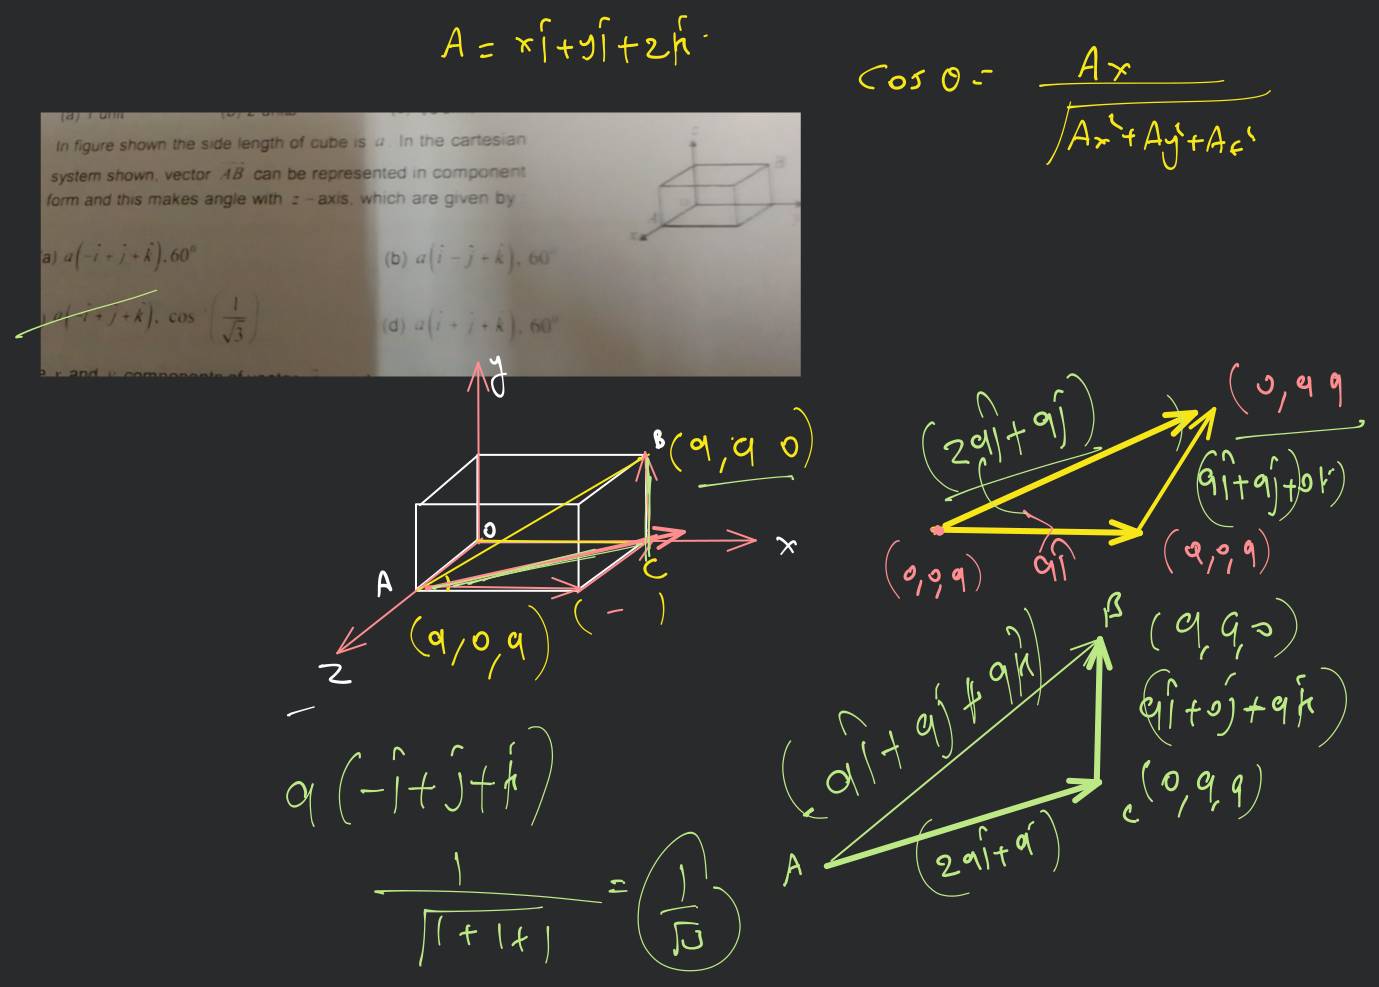 A = xî+yĵ+zk̂
Cos θ = Ax
√Ax²+Ay²+Az²
In figure shown the side length of cube is a. In the cartesian
system shown, vector AB can be represented in component
form and this makes angle with z-axis, which are given by
a) a(-î+ĵ+k̂), 60°
(b) a(î-ĵ+k̂), 60°
a(-î+ĵ+k̂), cos (1/√3)
(d) a(î+ĵ+k̂), 60°
y
B (a, a 0)
O
x
A
C
(a, 0, a)
( - )
Z
(0, a a
(2aî+aĵ)
(aî+aĵ+0k̂)
(0,0,a)
aî
(a,0,a)
B (a, a, 0)
(aî+aĵ+ak̂)
(aî+0ĵ+ak̂)
C (0,a,a)
A
(2aî+a
a(-î+ĵ+k̂)
1
√1+1+1
= 1/√3